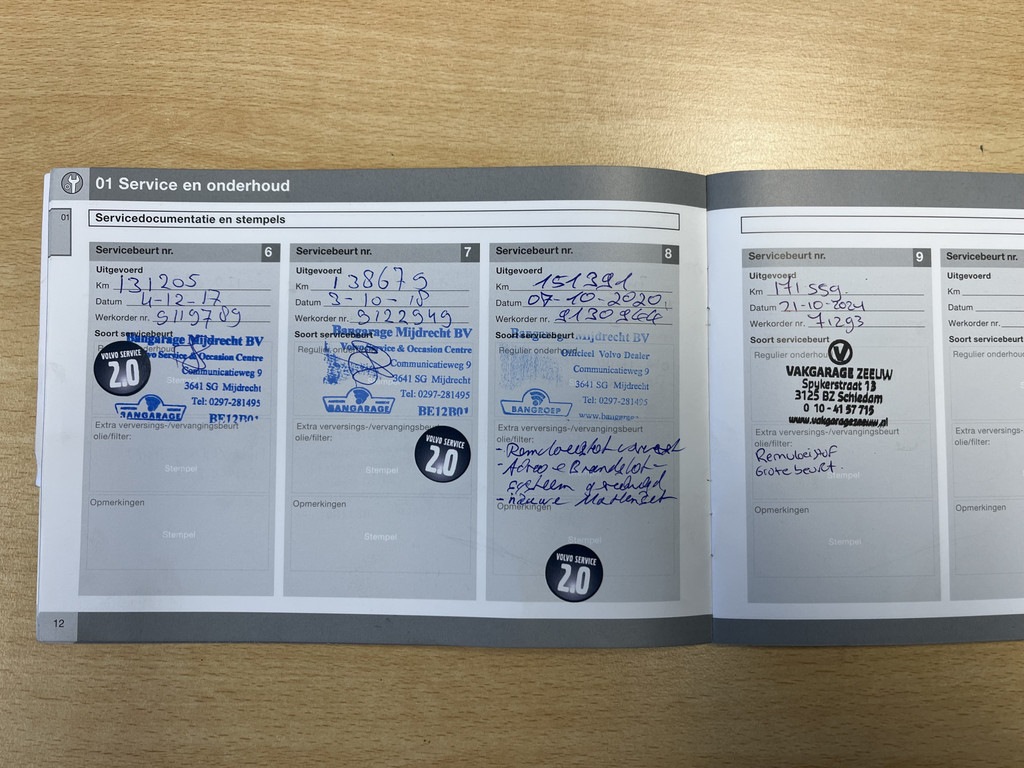 01 Service en onderhoud
01
Servicedocumentatie en stempels
Servicebeurt nr. 6
Uitgevoerd
Km 131205
Datum 4-12-17
Werkorder nr. 9119789
Soort servicebeurt
Regulier onderhoud
Bangarage Mijdrecht BV
Volvo Service & Occasion Centre
Communicatieweg 9
3641 SG Mijdrecht
Tel: 0297-281495
BANGARAGE
BE12B01
VOLVO SERVICE
2.0
Extra verversings-/vervangingsbeurt
olie/filter:
Stempel
Opmerkingen
Stempel
12
Servicebeurt nr. 7
Uitgevoerd
Km 138679
Datum 3-10-18
Werkorder nr. 9122949
Soort servicebeurt
Regulier
Bangarage Mijdrecht BV
Volvo Service & Occasion Centre
Communicatieweg 9
3641 SG Mijdrecht
Tel: 0297-281495
BANGARAGE
BE12B01
Extra verversings-/vervangingsbeurt
olie/filter:
VOLVO SERVICE
2.0
Stempel
Opmerkingen
Stempel
Servicebeurt nr. 8
Uitgevoerd
Km 151391
Datum 07-10-2020
Werkorder nr.
Soort servicebeurt
Regulier onderhoud
Officieel Volvo Dealer
Communicatieweg 9
3641 SG Mijdrecht
Tel: 0297-281495
BANGROEP
Extra verversings-/vervangingsbeurt
olie/filter:
- Remvloeistof ververst
- Airco & Brandstof-
systeem gereinigd
- nieuwe Mattenset
Opmerkingen
Stempel
VOLVO SERVICE
2.0
Servicebeurt nr. 9
Uitgevoerd
Km 171559
Datum 21-10-2024
Werkorder nr. 71293
Soort servicebeurt
Regulier onderhoud
VAKGARAGE ZEEUW
Spykerstraat 13
3125 BZ Schiedam
0 10 - 41 57 715
www.vakgaragezeeuw.nl
Extra verversings-/vervangingsbeurt
olie/filter:
Remvloeistof
Grote beurt.
Opmerkingen
Stempel
Servicebeurt nr.
Uitgevoerd
Km
Datum
Werkorder nr.
Soort servicebeurt
Regulier onderhoud
Extra verversings-
olie/filter:
Opmerkingen